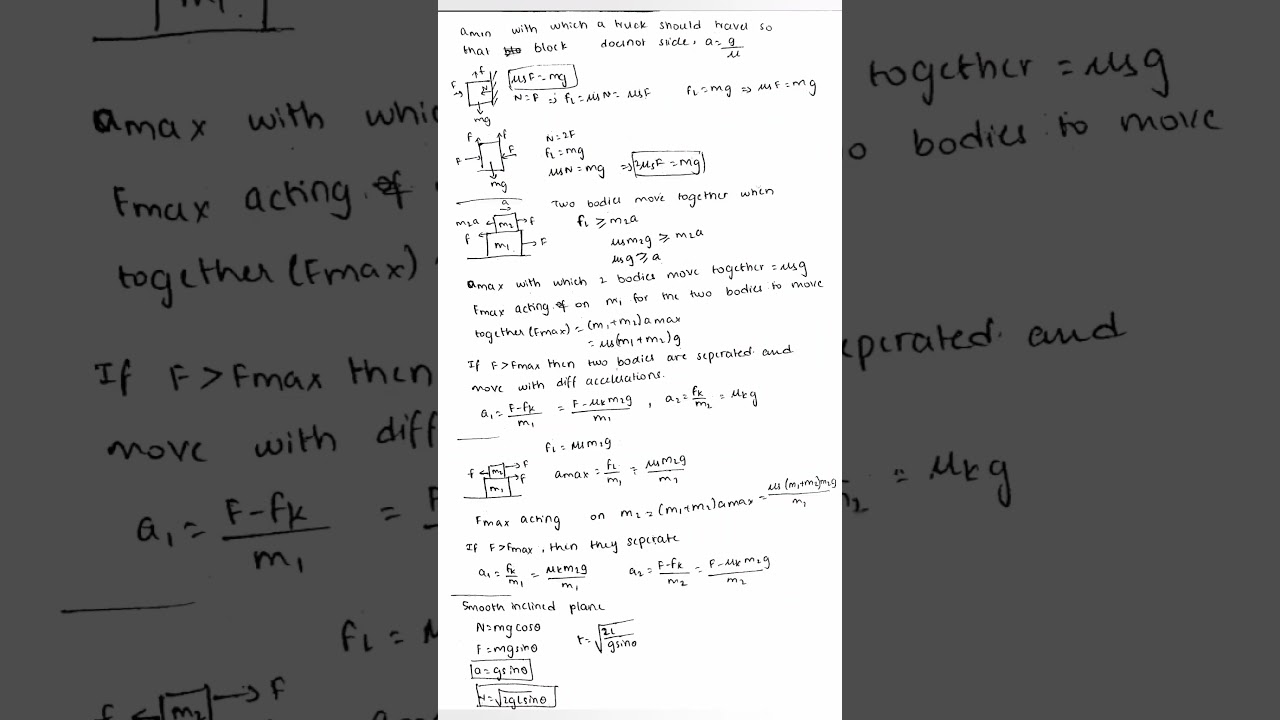 amin with which a truck should travel so
that block doesnot slide, a=g/μ
F f N mg
μsF=mg
N=F ⇒ fL=μsN=μsF fL=mg ⇒ μsF=mg
F f F F mg
N=2F
fL=mg
μsN=mg ⇒ 2μsF=mg
Two bodies move together when
a m2a m2 f f m1 F
fL ≥ m2a
μsm2g ≥ m2a
μsg ≥ a
amax with which 2 bodies move together = μsg
Fmax acting on m1 for the two bodies to move
together (Fmax) = (m1+m2)amax
= μs(m1+m2)g
If F>Fmax then two bodies are seperated and
move with diff accelerations.
a1=F-fk/m1 = F-μkm2g/m1 , a2=fk/m2 = μkg
f m2 F m1 f
amax = fL/m1 =
Fmax acting on m2 = (m1+m2)amax = μs(m1+m2)m2g/m1
If F>Fmax, then they seperate
a1= fk/m1 = μkm2g/m1 a2=F-fk/m2 = F-μkm2g/m2
Smooth inclined plane
N=mgcosθ t=√2L/gsinθ
F=mgsinθ
a=gsinθ
=√2gLsinθ